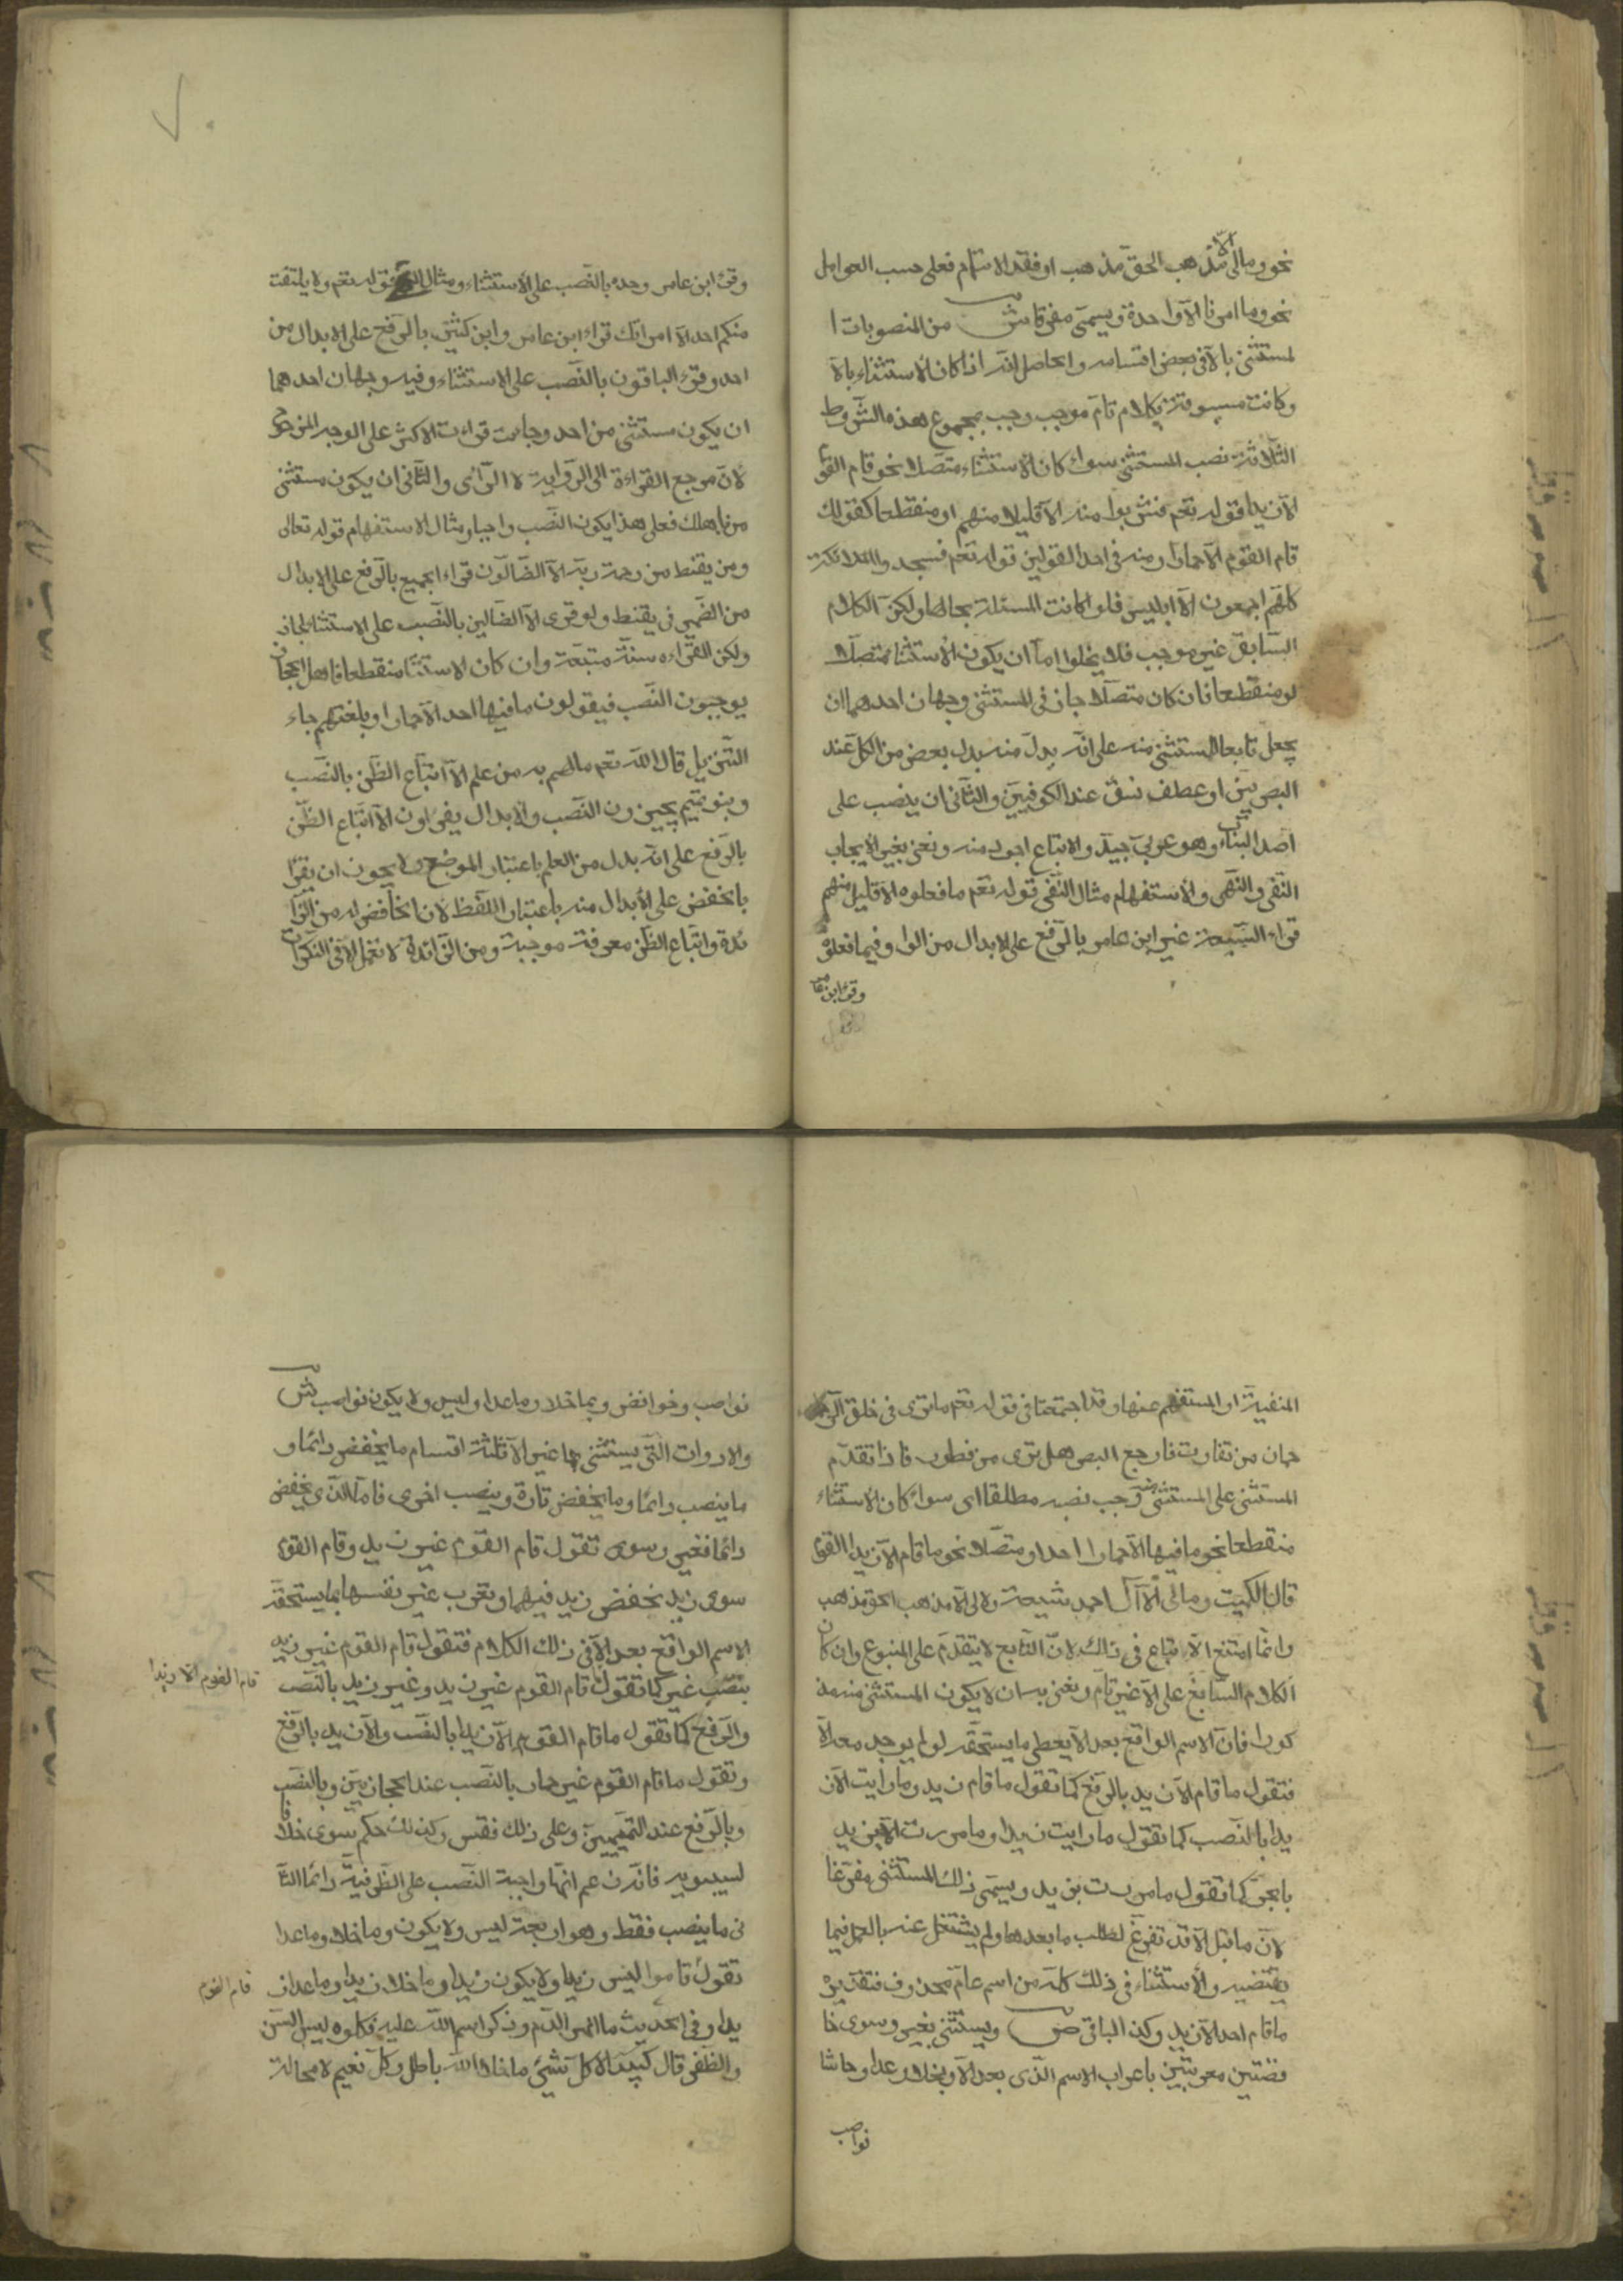 نحو ومالى الا مذهب الحق مذهب او فقد الاتمام فعلى حسب العوامل
نحو وما امرنا الا واحدة ويسمى مفرغا ش من المنصوبات ا
لمستثنى بالا فى بعض اقسامه والحاصل انه اذا كان الاستثناء بالا
وكانت مسبوقة بكلام تام موجب وجب بمجموع هذه الشروط
الثلاثة نصب المستثنى سواء كان الاستثناء متصلا نحو قام القوم
الا زيدا قوله تعم فشربوا منه الا قليلا منهم او منقطعا كقولك
قام القوم الا حمارا ومنه فى احد القولين قوله تعم فسجد والملائكة
كلهم اجمعون الا ابليس فلو كانت المسئلة بحالها ولكن الكلام
السابق غير موجب فلا يخلوا اما ان يكون الاستثناء متصلا
او منقطعا فان كان متصلا جاز فى المستثنى وجهان احدهما ان
يجعل تابعا للمستثنى منه على انه بدل منه بدل بعض من الكل عند
البصريين او عطف نسق عند الكوفيين والثانى ان ينصب على
اصل الباب وهو عربى جيد والاتباع اجود منه ونعنى بغير الايجاب
النفى والنهى والاستفهام مثال النفى قوله تعم ما فعلوه الا قليل منهم
قراء السبعة غير ابن عامر بالرفع على الابدال من الواو فيما فعلوه
وقرئ ابن عامر
وقرئ ابن عامر وحده بالنصب على الاستثناء ومثال النهى قوله تعم ولا يلتفت
منكم احد الا امراتك قراء ابن عامر وابن كثير بالرفع على الابدال من
احد وقرء الباقون بالنصب على الاستثناء وفيه وجهان احدهما
ان يكون مستثنى من احد وجاءت قراءت الاكثر على الوجه المرجوح
لان مرجع القراءة الى الرواية لا الراى والثانى ان يكون مستثنى
من باهلك فعلى هذا يكون النصب واجبا ومثال الاستفهام قوله تعالى
ومن يقنط من رحمة ربه الا الضالون قراء الجميع بالرفع على الابدال
من الضمير فى يقنط ولو قرى الا الضالين بالنصب على الاستثناء لجاز
ولكن القراءه سنة متبعة وان كان الاستثنا منقطعا فاهل الحجاز
يوجبون النصب فيقولون ما فيها احد الا حمارا وبلغتهم جاء
التنزيل قال الله تعم مالهم به من علم الا اتباع الظن بالنصب
وبنو تميم يجيزون النصب والابدال يقرؤن الا اتباع الظن
بالرفع على انه بدل من العلم باعتبار الموضع ولا يجوز ان يقرا
بالخفض على الابدال منه باعتبار اللفظ لان الخافض له من الزا
ئدة واتباع الظن معرفة موجبة ومن الزائدة لا تعمل الا فى النكرات
المنفية او المستفهم عنها وقد اجتمعتا فى قوله تعم ما ترى فى خلق الر
حمان من تفاوت فارجع البصر هل ترى من فطور فاذا تقدم
المستثنى على المستثنى منه وجب نصبه مطلقا اى سواء كان الاستثناء
منقطعا نحو ما فيها الا حمارا احد او متصلا نحو ما قام الا زيدا القوم
قال الكميت ومالى الا آل احمد شيعة ولا لى الا مذهب الحق مذهب
وانما امتنع الاتباع فى ذالك لان التابع لا يتقدم على المتبوع وان كان
الكلام السابق على الا غير تام ونعنى به ان لا يكون المستثنى منه مذ
كورا فان الاسم الواقع بعد الا يعطى ما يستحقه لو لم يوجد معه الا
فتقول ما قام الا زيد بالرفع كما تقول ما قام زيد وما رايت الا ز
يدا بالنصب كما تقول ما رايت زيدا وما مررت الا بزيد
بالجر كما تقول ما مررت بزيد ويسمى ذلك المستثنى مفرغا
لان ما قبل الا قد تفرغ لطلب ما بعدها ولم يشتغل عنه بالعمل فيما
يقتضيه والاستثناء فى ذلك كله من اسم عام محذوف فتقديره
ما قام احد الا زيد وكذ الباقى ص ويستثنى بغير وسوى خا
فضتين معربتين باعراب الاسم الذى بعد الا وبخلا وعدا وحاشا
نواصب
نواصب وخوافض وبما خلا وما عدا وليس ولا يكون نواصب ش
والادوات التى يستثنى بها غير الا ثلثة اقسام ما يخفض دائما و
ما ينصب دائما وما يخفض تارة وينصب اخرى فاما الذى يخفض
دائما فغير وسوى تقول قام القوم غير زيد وقام القوم
سوى زيد بخفض زيد فيهما وتعرب غير نفسها بما يستحقه
الاسم الواقع بعد الا فى ذلك الكلام فتقول قام القوم غير زيد
قام القوم الا زيدا
بنصب غير كما تقول قام القوم غير زيد وغير زيد بالنصب
والرفع كما تقول ما قام القوم الا زيدا بالنصب والا زيد بالرفع
وتقول ما قام القوم غير حمار بالنصب عند الحجازيين وبالنصب
وبالرفع عند التميميين وعلى ذلك فقس وكذلك حكم سوى خلافا
لسيبويه فانه زعم انها واجبة النصب على الظرفية دائما الثا
نى ما ينصب فقط وهو اربعة ليس ولا يكون وما خلا وما عدا
تقول قاموا ليس زيدا ولا يكون زيدا وما خلا زيدا وما عدا ز
قام القوم
يدا وفى الحديث ما انهر الدم وذكر اسم الله عليه فكلوه ليس السن
والظفر قال لبيد الا كل شيئ ما خلا الله باطل وكل نعيم لا محالة